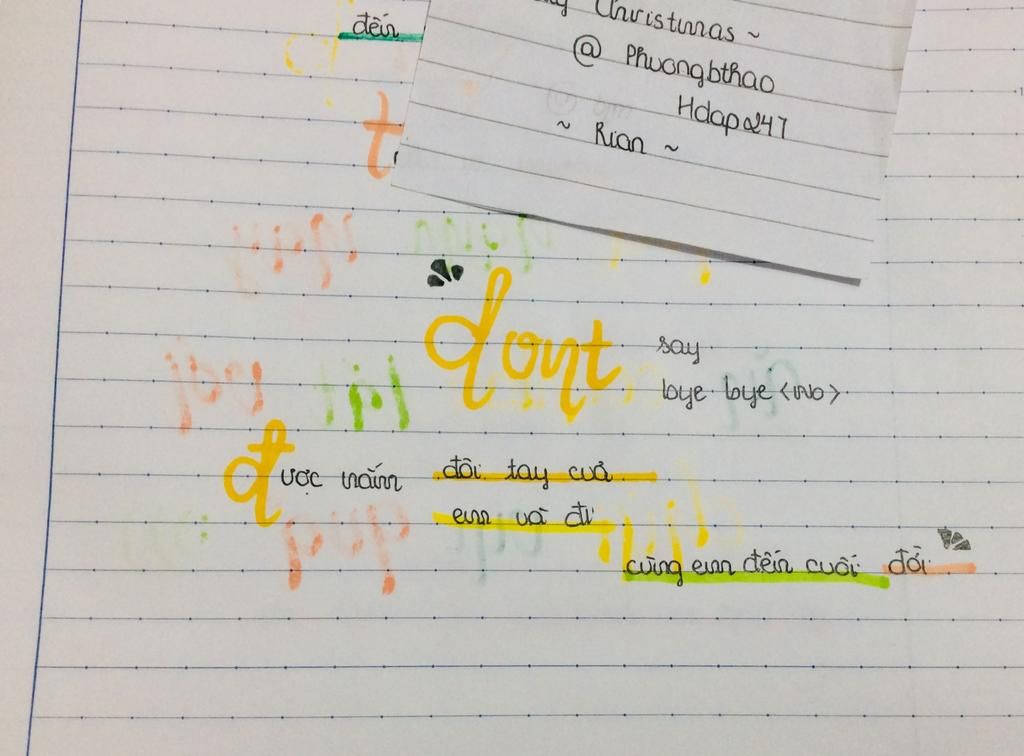 đến
Christmas ~
@ Phuongbthao
Hdap247
~ Rian ~
t
dont say
bye bye <No>
được nắm đôi tay cuả
em và đi
cùng em đến cuối đời